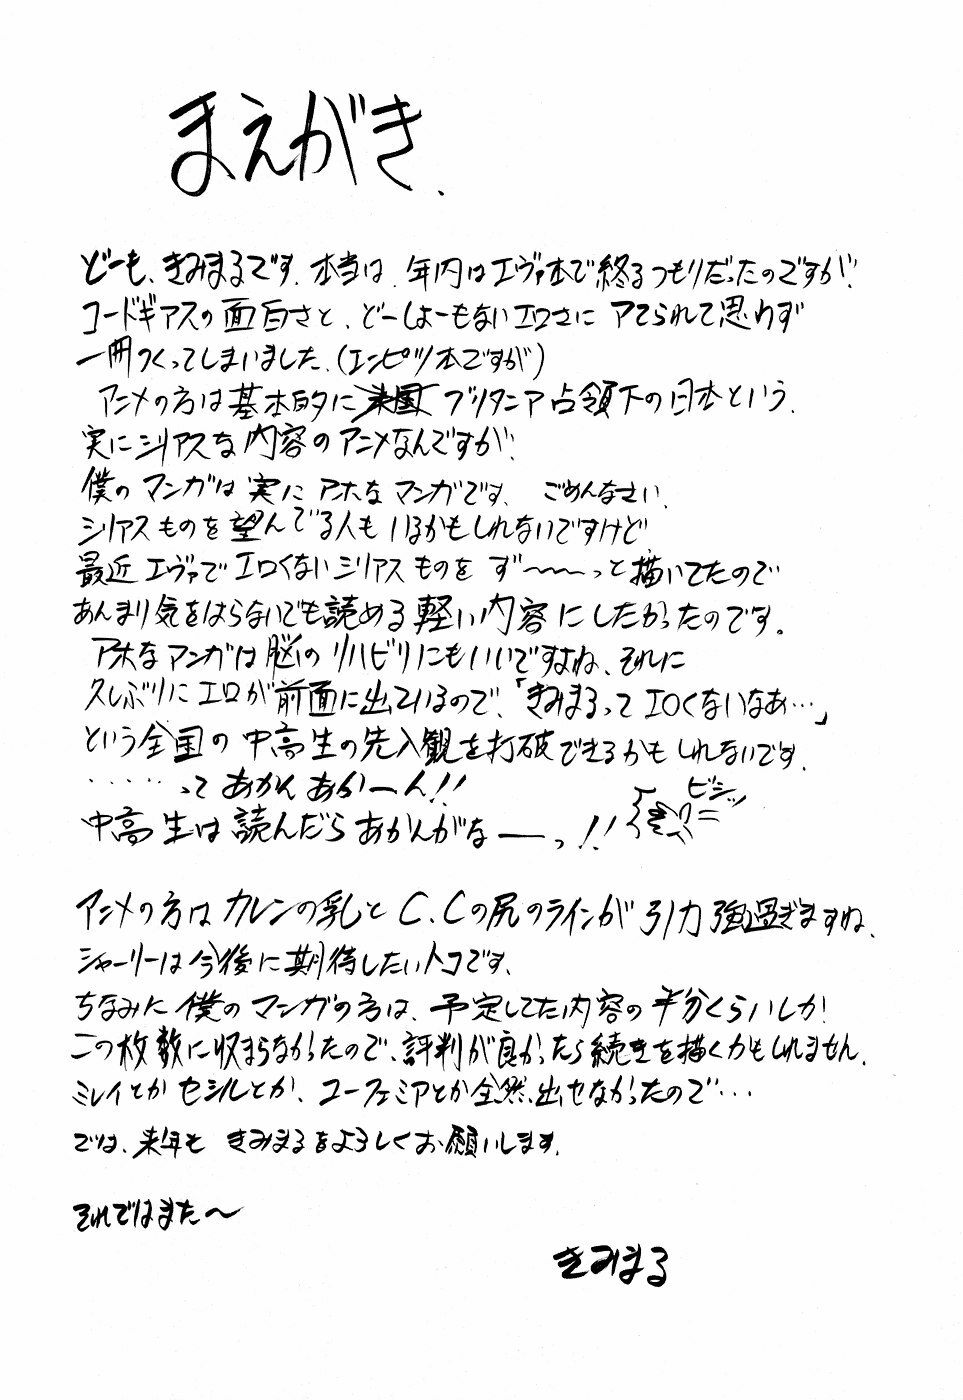 まえがき、
どーも、きみまるです。本当は、年内はエヴァ本で終るつもりだったのですが、
コードギアスの面白さと、どーしよーもないエロさに アてられて思わず
一冊つくってしまいました。(エンピツ本ですが)
アニメの方は基本的に米国ブリタニア占領下の日本という、
実にシリアスな内容のアニメなんですが、
僕のマンガは実にアホなマンガです、ごめんなさい、
シリアスものを望んでる人もいるかもしれないですけど
最近エヴァでエロくないシリアスものを ず〜〜〜っと描いてたので
あんまり気をはらないでも読める軽い内容にしたかったのです。
アホなマンガは脳のリハビリにもいいですよね、それに
久しぶりにエロが前面に出ているので、「きみまるってエロくないなあ…」
という全国の中高生の先入観を打破できるかもしれないです、
・・・・・・ってあかんあかーん!!
中高生は読んだらあかんがなーっ!!
ビシッ
アニメの方はカレンの乳とC.Cの尻のラインが引力強過ぎますね、
シャーリーは今後に期待したいトコです、
ちなみに僕のマンガの方は、予定してた内容の半分くらいしか
この枚数に収まらなかったので、評判が良かったら続きを描くかもしれません、
ミレイとかセシルとか、ユーフェミアとか全然出せなかったので…
では、来年もきみまるをよろしくお願いします、
それではまた〜
きみまる